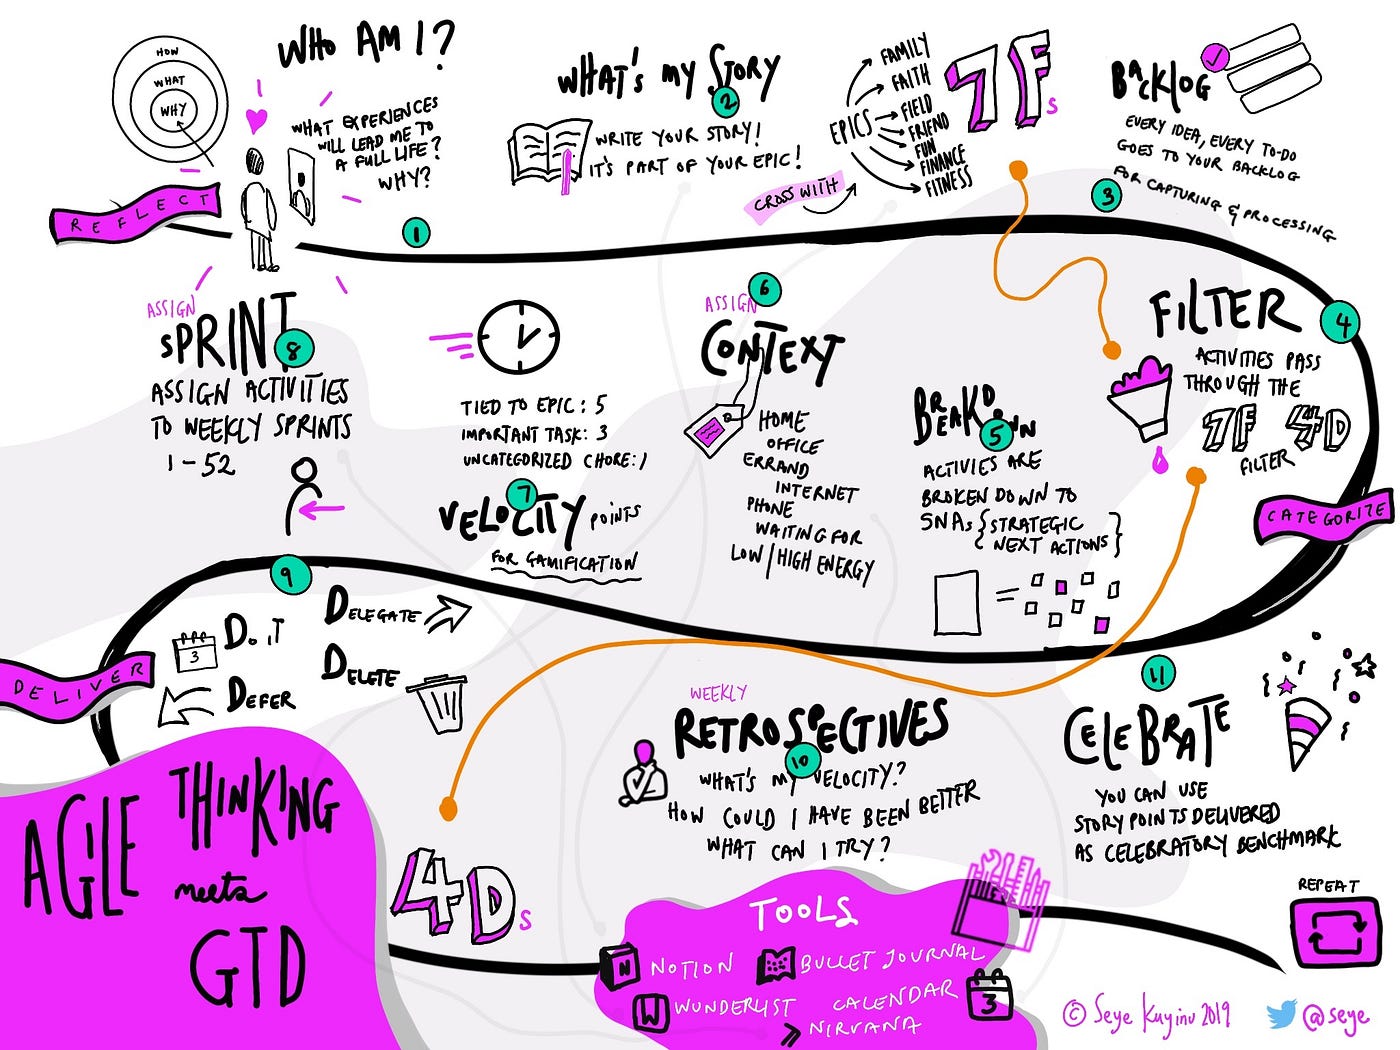 HOW
WHAT
WHY
WHO AM I?
WHAT EXPERIENCES
WILL LEAD ME TO
A FULL LIFE?
WHY?
REFLECT
1
WHAT'S MY STORY
2
WRITE YOUR STORY!
IT'S PART OF YOUR EPIC!
CROSS WITH
EPICS
FAMILY
FAITH
FIELD
FRIEND
FUN
FINANCE
FITNESS
7Fs
BACKLOG
EVERY IDEA, EVERY TO-DO
GOES TO YOUR BACKLOG
FOR CAPTURING & PROCESSING
3
FILTER
4
ACTIVITIES PASS
THROUGH THE
7F 4D
FILTER
CATEGORIZE
BREAKDOWN
5
ACTIVIES ARE
BROKEN DOWN TO
SNAs {STRATEGIC
NEXT ACTIONS}
=
ASSIGN
6
CONTEXT
HOME
OFFICE
ERRAND
INTERNET
PHONE
WAITING FOR
LOW/HIGH ENERGY
TIED TO EPIC: 5
IMPORTANT TASK: 3
UNCATEGORIZED CHORE: 1
7
VELOCITY POINTS
FOR GAMIFICATION
ASSIGN
SPRINT
8
ASSIGN ACTIVITIES
TO WEEKLY SPRINTS
1-52
9
DO IT
3
DELEGATE
DELETE
DEFER
DELIVER
4Ds
WEEKLY
RETROSPECTIVES
10
WHAT'S MY VELOCITY?
HOW COULD I HAVE BEEN BETTER
WHAT CAN I TRY?
11
CELEBRATE
YOU CAN USE
STORY POINTS DELIVERED
AS CELEBRATORY BENCHMARK
REPEAT
AGILE
THINKING
meets
GTD
TOOLS
N NOTION
BULLET JOURNAL
W WUNDERLIST
CALENDAR
3
NIRVANA
© Seye Kuyinu 2019
@seye